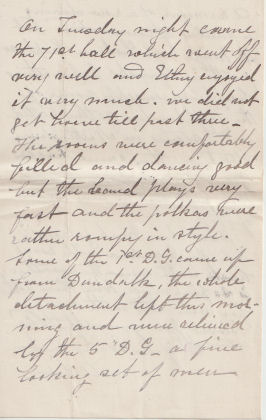 On Tuesday night came
the 71st ball which went off
very well and Ethy enjoyed
it very much. We did not
get home till past three _
The rooms were comfortably
filled and dancing good
but the band plays very
fast and the polkas were
rather rompy in style.
Some of the 7th D.G. came up
from Dundalk, the whole
detachment left this mor-
ning and were relieved
by the 5 D.G _ a fine
looking set of men